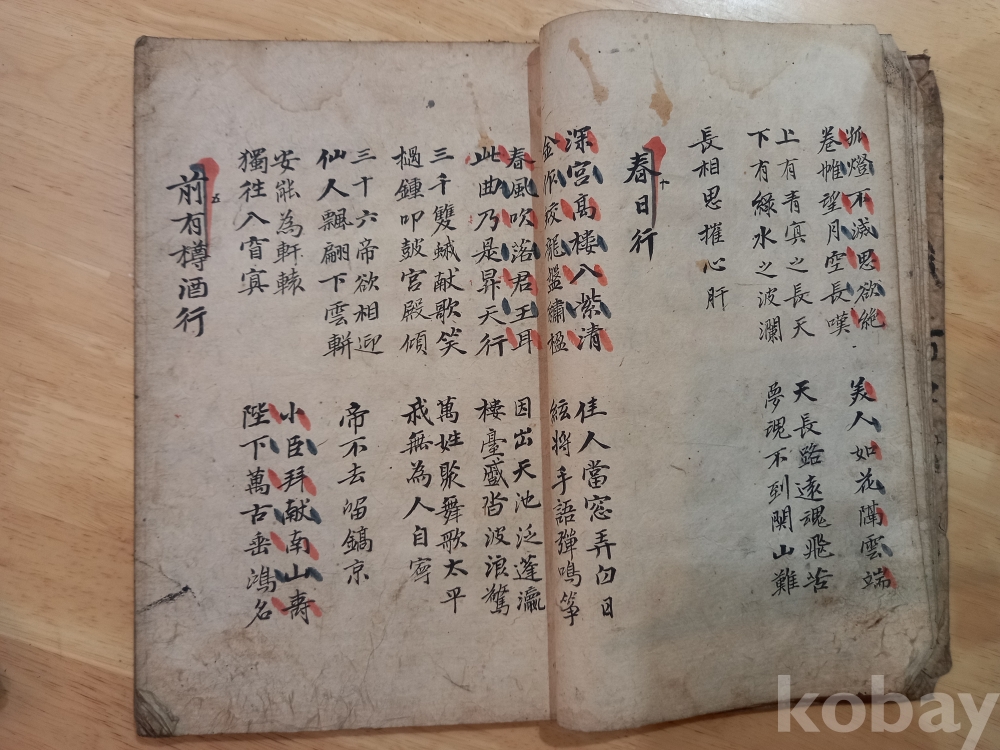 孤燈不滅思欲絶
卷帷望月空長嘆
美人如花隔雲端
上有青冥之長天
下有綠水之波瀾
天長路遠魂飛苦
夢魂不到関山難
長相思摧心肝
春日行 十
深宮高樓入紫清
金作蛟龍盤繡楹
佳人當窓弄白日
絃將手語彈鳴箏
春風吹落君王耳
此曲乃是昇天行
因出天池泛蓬瀛
樓臺盛沓波浪驚
三千雙蛾献歌笑
檛鍾叩鼓宮殿傾
萬姓聚舞歌太平
我無為人自寧
三十六帝欲相迎
仙人飄翩下雲輧
帝不去留鎬京
安能為軒轅
獨往入窅冥
小臣拜献南山壽
陛下萬古垂鴻名
前有樽酒行 五
kobay